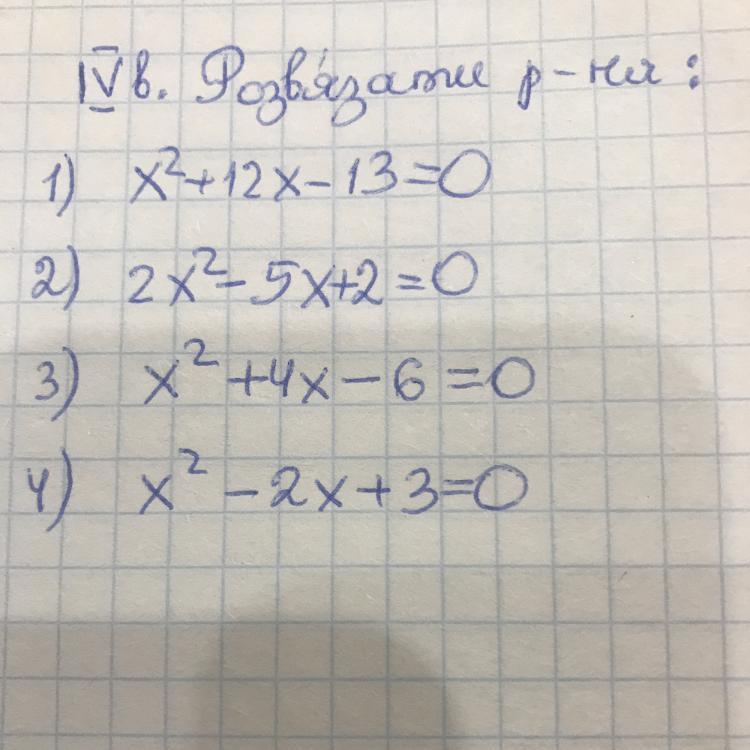 IV в. Розв'язати р-ня:
1) x²+12x-13=0
2) 2x²-5x+2=0
3) x²+4x-6=0
4) x²-2x+3=0